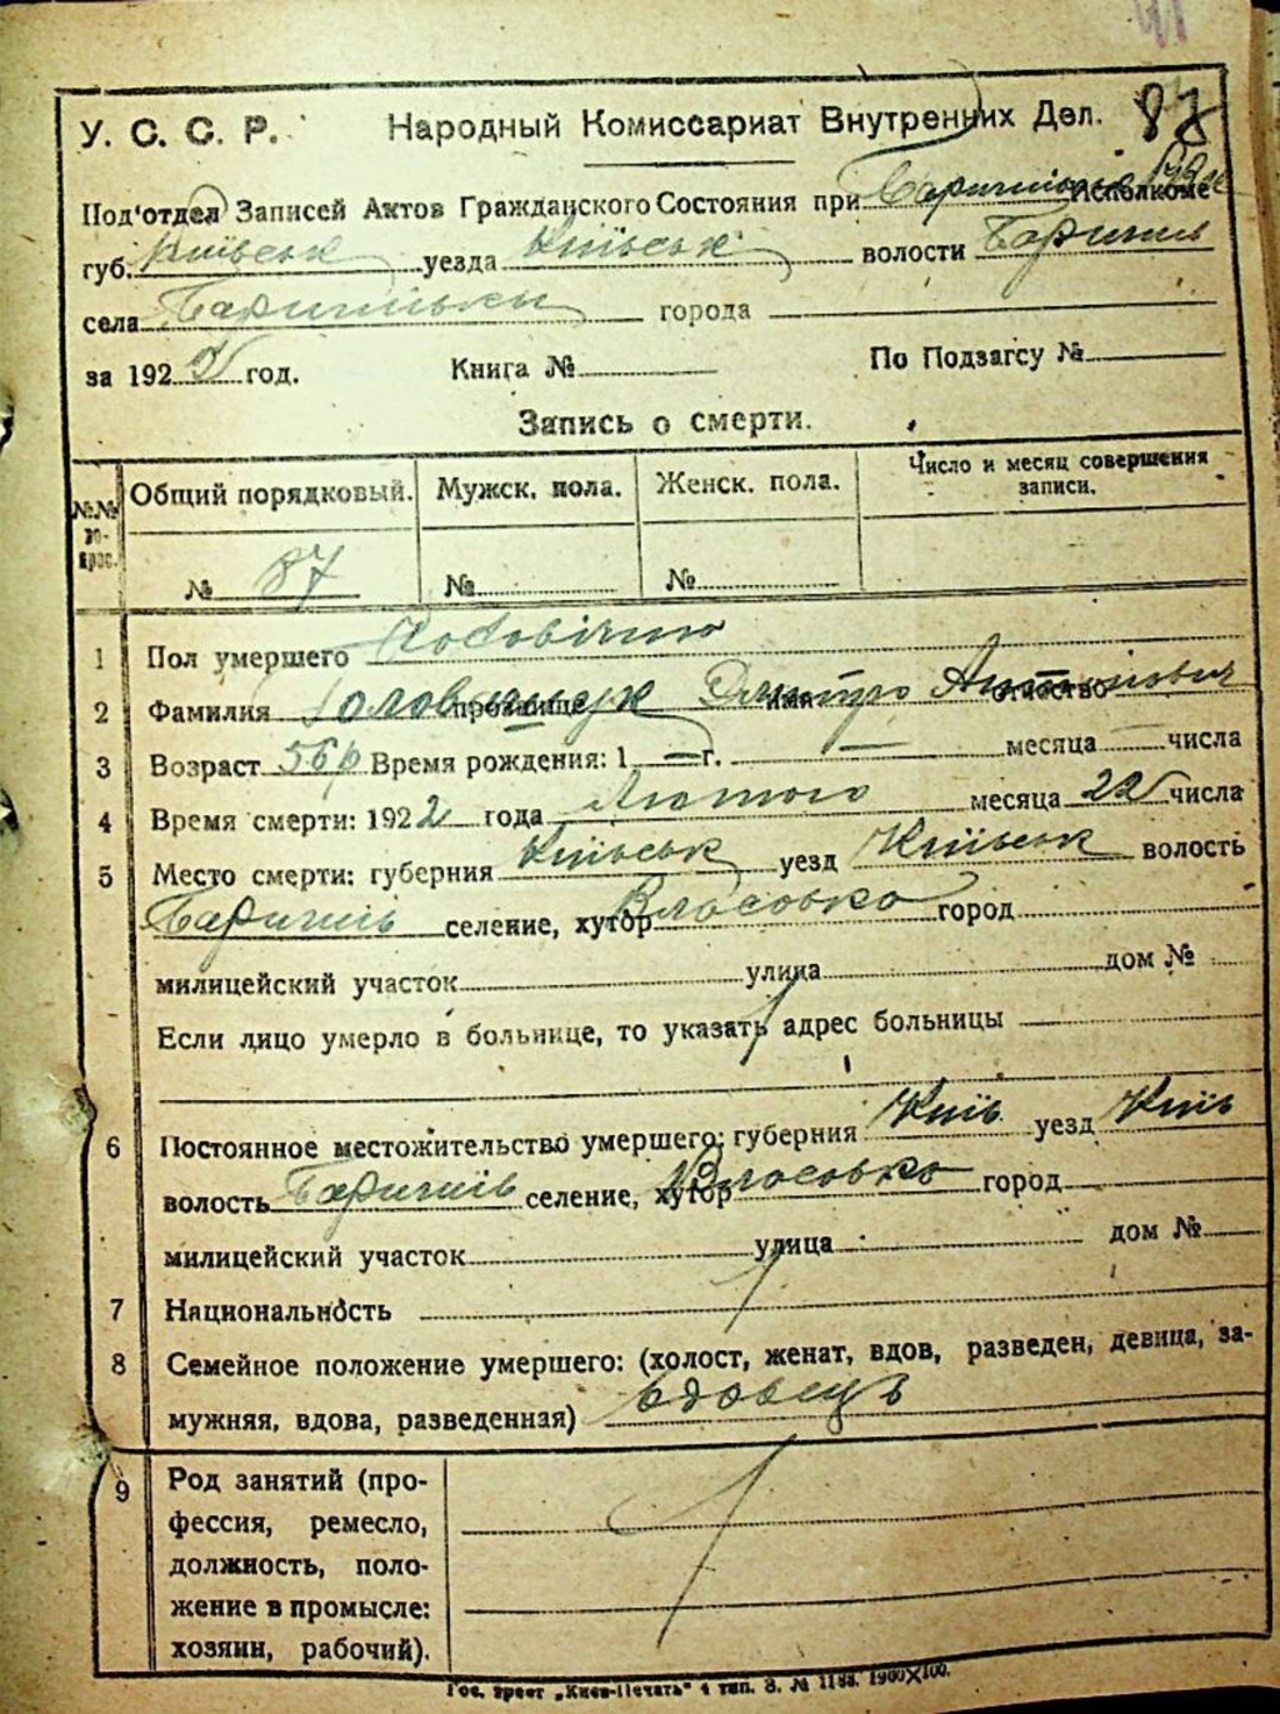 У. С. С. Р. Народный Комиссариат Внутренних Дел. 87
Под'отдел Записей Актов Гражданского Состояния при Исполкоме
губ. Київськ уезда Київськ волости Баришпіль
села города
за 192 год. Книга № По Подзагсу №
Запись о смерти.
№№ во-прос. Общий порядковый. Мужск. пола. Женск. пола. Число и месяц совершения
записи.
№ 87 № №
1 Пол умершего Чоловічого
2 Фамилия прозвище имя Дмитро отчество Антонович
3 Возраст 56 р Время рождения: 1 — г. — месяца — числа
4 Время смерти: 1922 года Лютого месяца 22 числа
5 Место смерти: губерния Київськ уезд Київськ волость
селение, хутор Власовка город
милицейский участок улица дом №
Если лицо умерло в больнице, то указать адрес больницы
6 Постоянное местожительство умершего: губерния Київ уезд Київ
волость селение, хутор Власовка город
милицейский участок улица дом №
7 Национальность
8 Семейное положение умершего: (холост, женат, вдов, разведен, девица, за-
мужняя, вдова, разведенная) вдовець
9 Род занятий (про-
фессия, ремесло,
должность, поло-
жение в промысле:
хозяин, рабочий).
Гос. трест „Киев-Печать" 4 тип. З. № 1188. 1900×100.